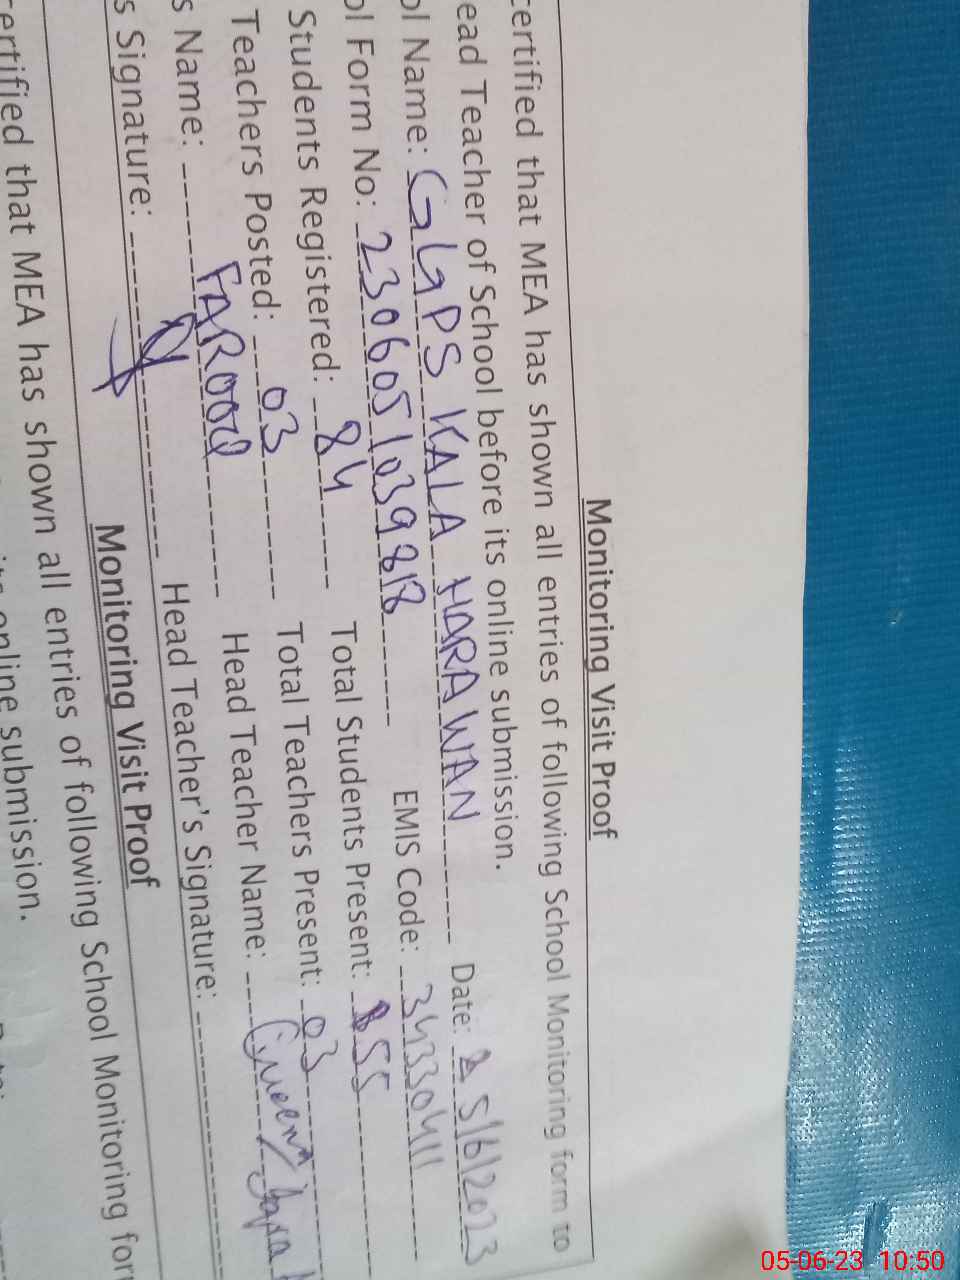 Monitoring Visit Proof
certified that MEA has shown all entries of following School Monitoring form to
ead Teacher of School before its online submission.
ol Name: GGPS KALA HARAWAN Date: 5/6/2023
ol Form No: 2306051039818 EMIS Code: 34330411
Students Registered: 84 Total Students Present: 55
Teachers Posted: 03 Total Teachers Present: 03
s Name: FAROOQ Head Teacher Name:
s Signature: Head Teacher's Signature:
Monitoring Visit Proof
certified that MEA has shown all entries of following School Monitoring for
its online submission.
05-06-23 10:50